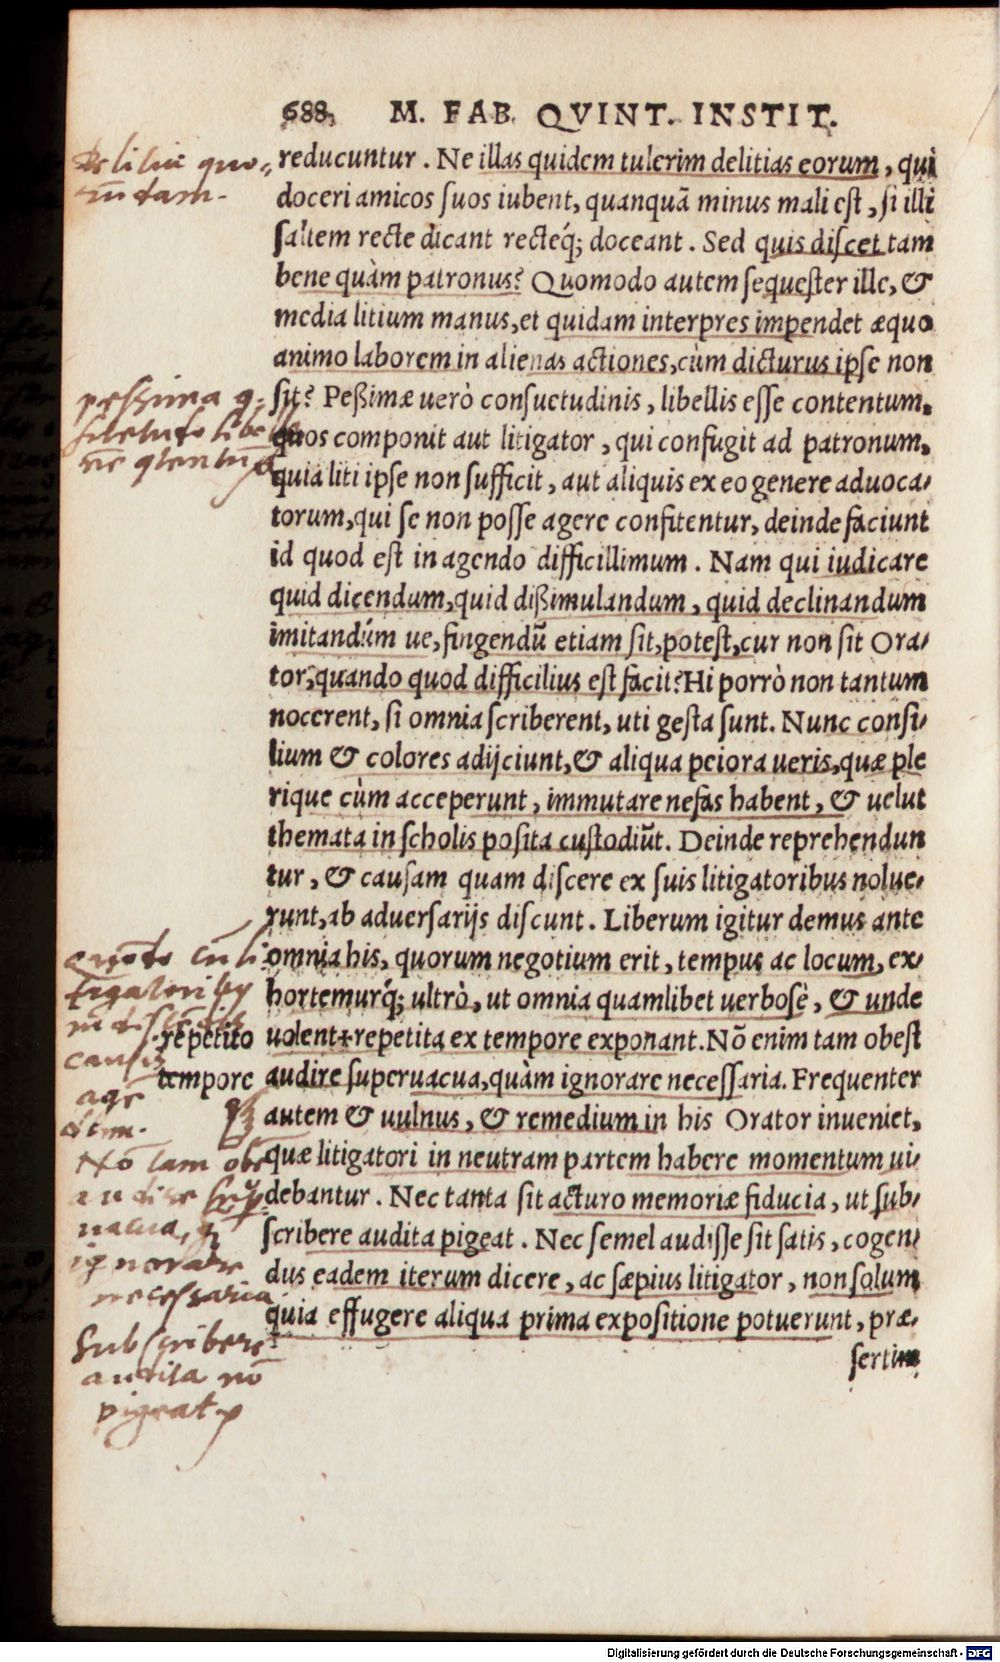 688 M. FAB. QVINT. INSTIT.
reducuntur. Ne illas quidem tulerim delitias eorum, qui
doceri amicos suos iubent, quanquã minus mali est, si illi
saltem recte dicant recteq́; doceant. Sed quis discet tam
bene quàm patronus? Quomodo autem sequester ille, &
media litium manus, et quidam interpres impendet æquo
animo laborem in alienas actiones, cùm dicturus ipse non
sit? Peßimæ uerò consuetudinis, libellis esse contentum,
quos componit aut litigator, qui confugit ad patronum,
quia liti ipse non sufficit, aut aliquis ex eo genere aduoca-
torum, qui se non posse agere confitentur, deinde faciunt
id quod est in agendo difficillimum. Nam qui iudicare
quid dicendum, quid dißimulandum, quid declinandum
imitandúm ue, fingendũ etiam sit, potest, cur non sit Ora-
tor, quando quod difficilius est facit? Hi porrò non tantum
nocerent, si omnia scriberent, uti gesta sunt. Nunc consi-
lium & colores adijciunt, & aliqua peiora ueris, quæ ple
rique cùm acceperunt, immutare nefas habent, & uelut
themata in scholis posita custodiũt. Deinde reprehendun
tur, & causam quam discere ex suis litigatoribus nolue-
runt, ab aduersarijs discunt. Liberum igitur demus ante
omnia his, quorum negotium erit, tempus ac locum, ex-
hortemurq́; ultrò, ut omnia quamlibet uerbosè, & unde
uolent+repetita ex tempore exponant. Nõ enim tam obest
audire superuacua, quàm ignorare necessaria. Frequenter
autem & uulnus, & remedium in his Orator inueniet,
quæ litigatori in neutram partem habere momentum ui-
debantur. Nec tanta sit acturo memoriæ fiducia, ut sub-
scribere audita pigeat. Nec semel audisse sit satis, cogen-
dus eadem iterum dicere, ac sæpius litigator, non solum
quia effugere aliqua prima expositione potuerunt, præ-
sertim
repetito
tempore
Delitiæ quo-
rũdam.
pessima
Nõ tam
audire
ignorare
necessaria
Subscribere
audita nõ
pigeat
Digitalisierung gefördert durch die Deutsche Forschungsgemeinschaft - DFG